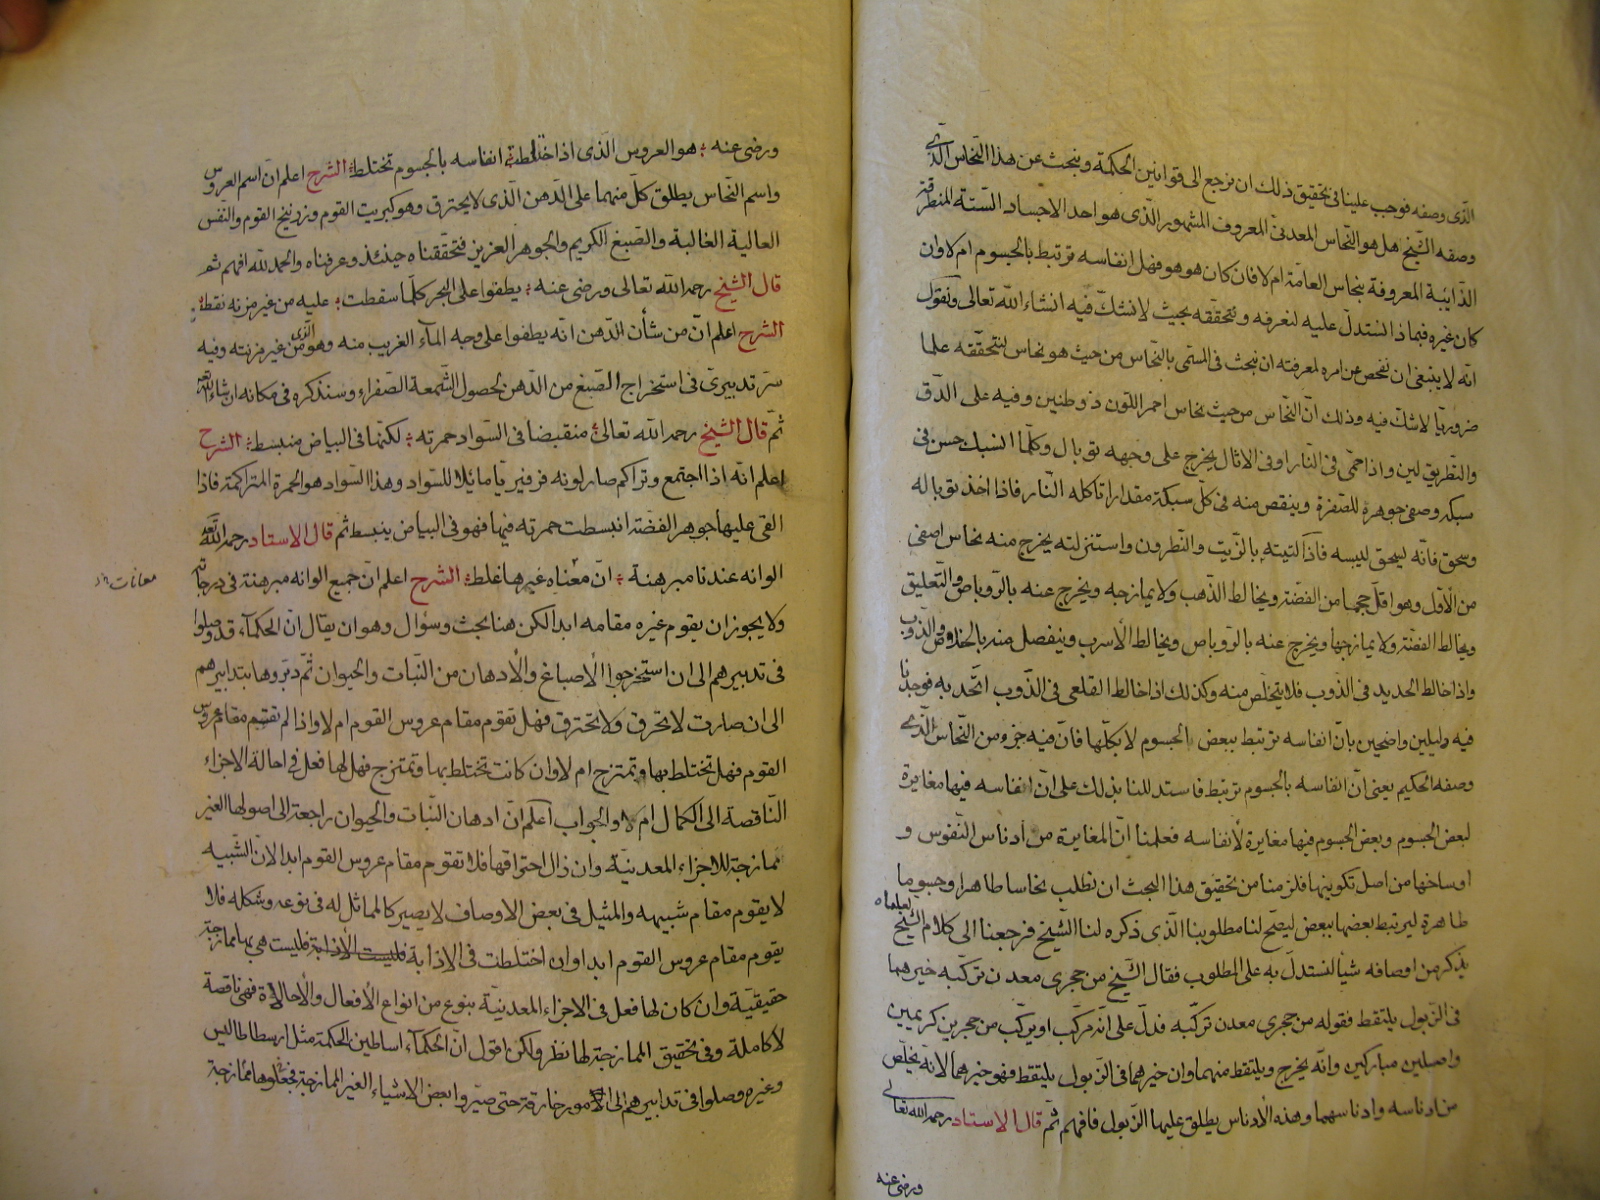 الذى وصفه فوجب علينا فى تحقيق ذلك ان نرجع الى قوانين الحكمة ونبحث عن هذا النحاس الذى
وصفه الشيخ هل هو النحاس المعدنى المعروف المشهور الذى هو احد الاجساد الستة المنطرقة
الذايبة المعروفة بنحاس العامة ام لا فان كان هو هو فهل انفاسه ترتبط بالجسوم ام لا وان
كان غيره فبماذا نستدل عليه لنعرفه ونتحققه بحيث لا نشك فيه انشاء الله تعالى ونقول
انه لا ينبغى ان نفحص عن امره لمعرفته ان نبحث فى المسمى بالنحاس من حيث هو نحاس لنتحققه علما
ضروريا لا شك فيه وذلك ان النحاس من حيث نحاس احمر اللون ذو طنين وفيه على الدق
والتطريق لين واذا حمى فى النار او فى الاتال يخرج على وجهه توبال وكلما انسبك حسن فى
سبكه وصفى جوهره للصفرة وينقص منه فى كل سبكة مقدار تاكله النار فاذا اخذ توباله
وسحق فانه يسحق ليبسه فاذا لتيته بالزيت والنطرون واستنزلته يخرج منه نحاس اصفى
من الاول وهو اقل حجما من الفضة ويخالط الذهب ولا يمازجه ويخرج عنه بالروباص والتعليق
ويخالط الفضة ولا يمازجها ويخرج عنه بالروباص ويخالط الاسرب وينفصل منه بالخلاص والذوب
واذا خالط الحديد فى الذوب فلا يتخلص منه وكذلك اذا خالط القلعى فى الذوب اتحد به فوجدنا
فيه دليلين واضحين بان انفاسه ترتبط ببعض الجسوم لا بكلها فان فيه جزء من النحاس الذى
وصفه الحكيم يعنى ان انفاسه بالجسوم ترتبط فاستدللنا بذلك على ان انفاسه فيها مغايرة
لبعض الجسوم وبعض الجسوم فيها مغايرة لأنفاسه فعلمنا ان المغايرة من ادناس النفوس و
اوساخها من اصل تكوينها فلزمنا من تحقيق هذا البحث ان نطلب نحاسا طاهرا وجسوما
طاهرة ليرتبط بعضها ببعض ليصح لنا مطلوبنا الذى ذكره لنا الشيخ فرجعنا الى كلام الشيخ لعلما ه
يذكر من اوصافه شيأ لنستدل به على المطلوب فقال الشيخ من حجرى معدن تركبه خيرهما
فى الزبول يلتقط فقوله من حجرى معدن تركبه فدل على انه مركب او يركب من حجرين كريمين
واصلين مباركين وانه يخرج ويلتقط منهما وان خيرهما فى الزبول يلتقط فهو خيرهما لانه يخلص
من ادناسه وادناسهما وهذه الادناس يطلق عليها الزبول فافهم ثم قال الاستاد رحمه الله تعالى
ورضى عنه
ورضى عنه هو العروس الذى اذا اختلطت انفاسه بالجسوم تختلط الشرح اعلم ان اسم العروس
واسم النحاس يطلق كل منهما على الدهن الذى لا يحترق وهو كبريت القوم وزرنيخ القوم والنفس
العالية الغالبة والصبغ الكريم والجوهر العزيز فتحققناه حينئذ وعرفناه والحمد لله افهم ثم
قال الشيخ رحمه الله تعالى ورضى عنه يطفوا على البحر كلما سقطت عليه من غير مزنه نقط
الشرح اعلم ان من شأن الدهن انه يطفوا على وجه الماء الغريب منه وهو الذى من غير مزنته وفيه
سر تدبيرى فى استخراج الصبغ من الدهن لحصول الشمعة الصفراء وسنذكره فى مكانه ان شاء الله
ثم قال الشيخ رحمه الله تعالى منقبضا فى السواد حمرته لكنها فى البياض منبسط الشرح
اعلم انه اذا اجتمع وتراكم صار لونه فرفيريا مايلا للسواد وهذا السواد هو الحمرة المتراكمة فاذا
القى عليها جوهر الفضة انبسطت حمرته فيها فهو فى البياض ينبسط ثم قال الاستاد رحمه الله تعه
الوانه عندنا مبرهنة ان معناه غيرها غلط الشرح اعلم ان جميع الوانه مبرهنة فى درجاته
ولا يجوز ان يقوم غيره مقامه ابدا لكن هنا بحث وسؤال وهو ان يقال ان الحكماء قد وصلوا
فى تدبيرهم الى ان استخرجوا الاصباغ والأدهان من النبات والحيوان ثم دبروها بتدابيرهم
الى ان صارت لا تحرق ولا تحترق فهل تقوم مقام عروس القوم ام لا واذا لم تقم مقام عروس
القوم فهل تختلط بها وتمتزج ام لا وان كانت تختلط بها وتمتزج فهل لها فعل فى احالة الاجزاء
الناقصة الى الكمال ام لا والجواب اعلم ان ادهان النبات والحيوان راجعة الى اصولها الغير
ممازجة للاجزاء المعدنية وان زال احتراقها فلا تقوم مقام عروس القوم ابدا لان الشبيه
لا يقوم مقام شبيهه والمثيل فى بعض الاوصاف لا يصير كالمماثل له فى نوعه وشكله فلا
يقوم مقام عروس القوم ابدا وان اختلطت فى الاذابة فليست الاذابة فليست هى بها ممازجة
حقيقية وان كان لها فعل فى الاجزاء المعدنية بنوع من انواع الأفعال والأحالاة فهى ناقصة
لا كاملة وفى تحقيق الممازجة لها نظر ولكن اقول ان الحكماء اساطين الحكمة مثل ارسطاطاليس
وغيره وصلوا فى تدابيرهم الى الامور خارقة حتى صيروا بعض الاشياء الغير الممازجة فجعلوها ممازجة